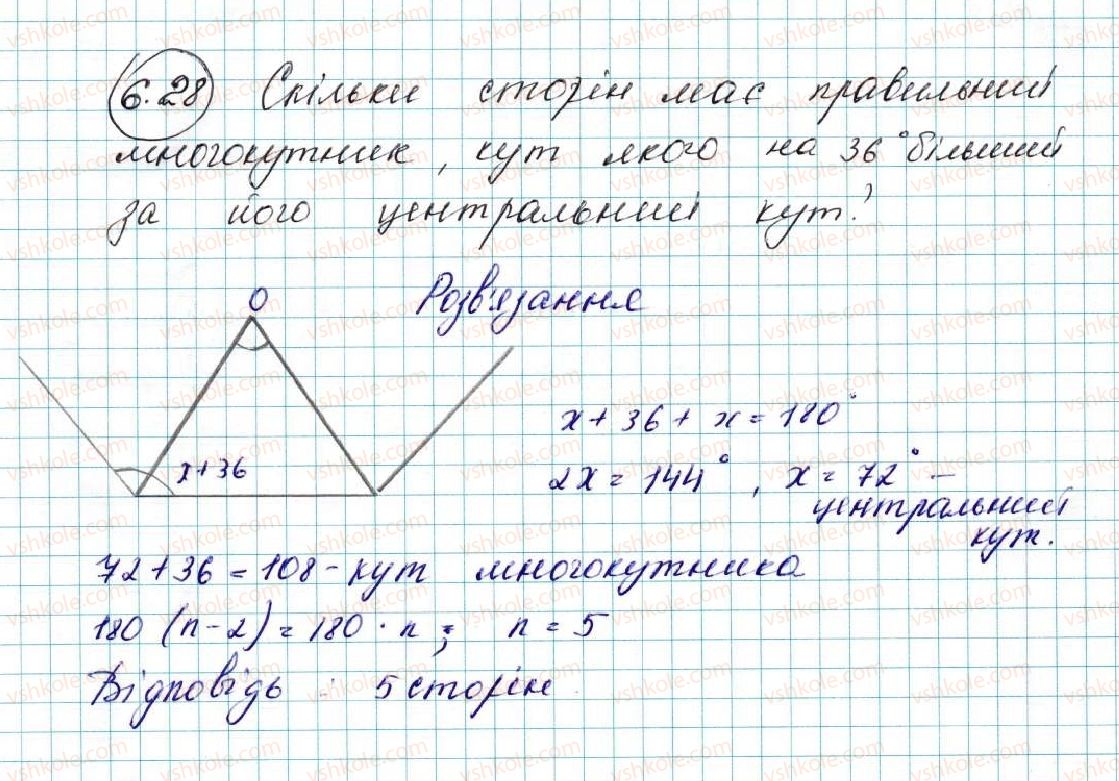 6.28 Скільки сторін має правильний
многокутник, кут якого на 36° більший
за його центральний кут?
Розв'язання
O
x+36
x + 36 + x = 180°
2x = 144°, x = 72° –
центральний
кут.
72 + 36 = 108 - кут многокутника
180 (n - 2) = 180 · n ; n = 5
Відповідь : 5 сторін